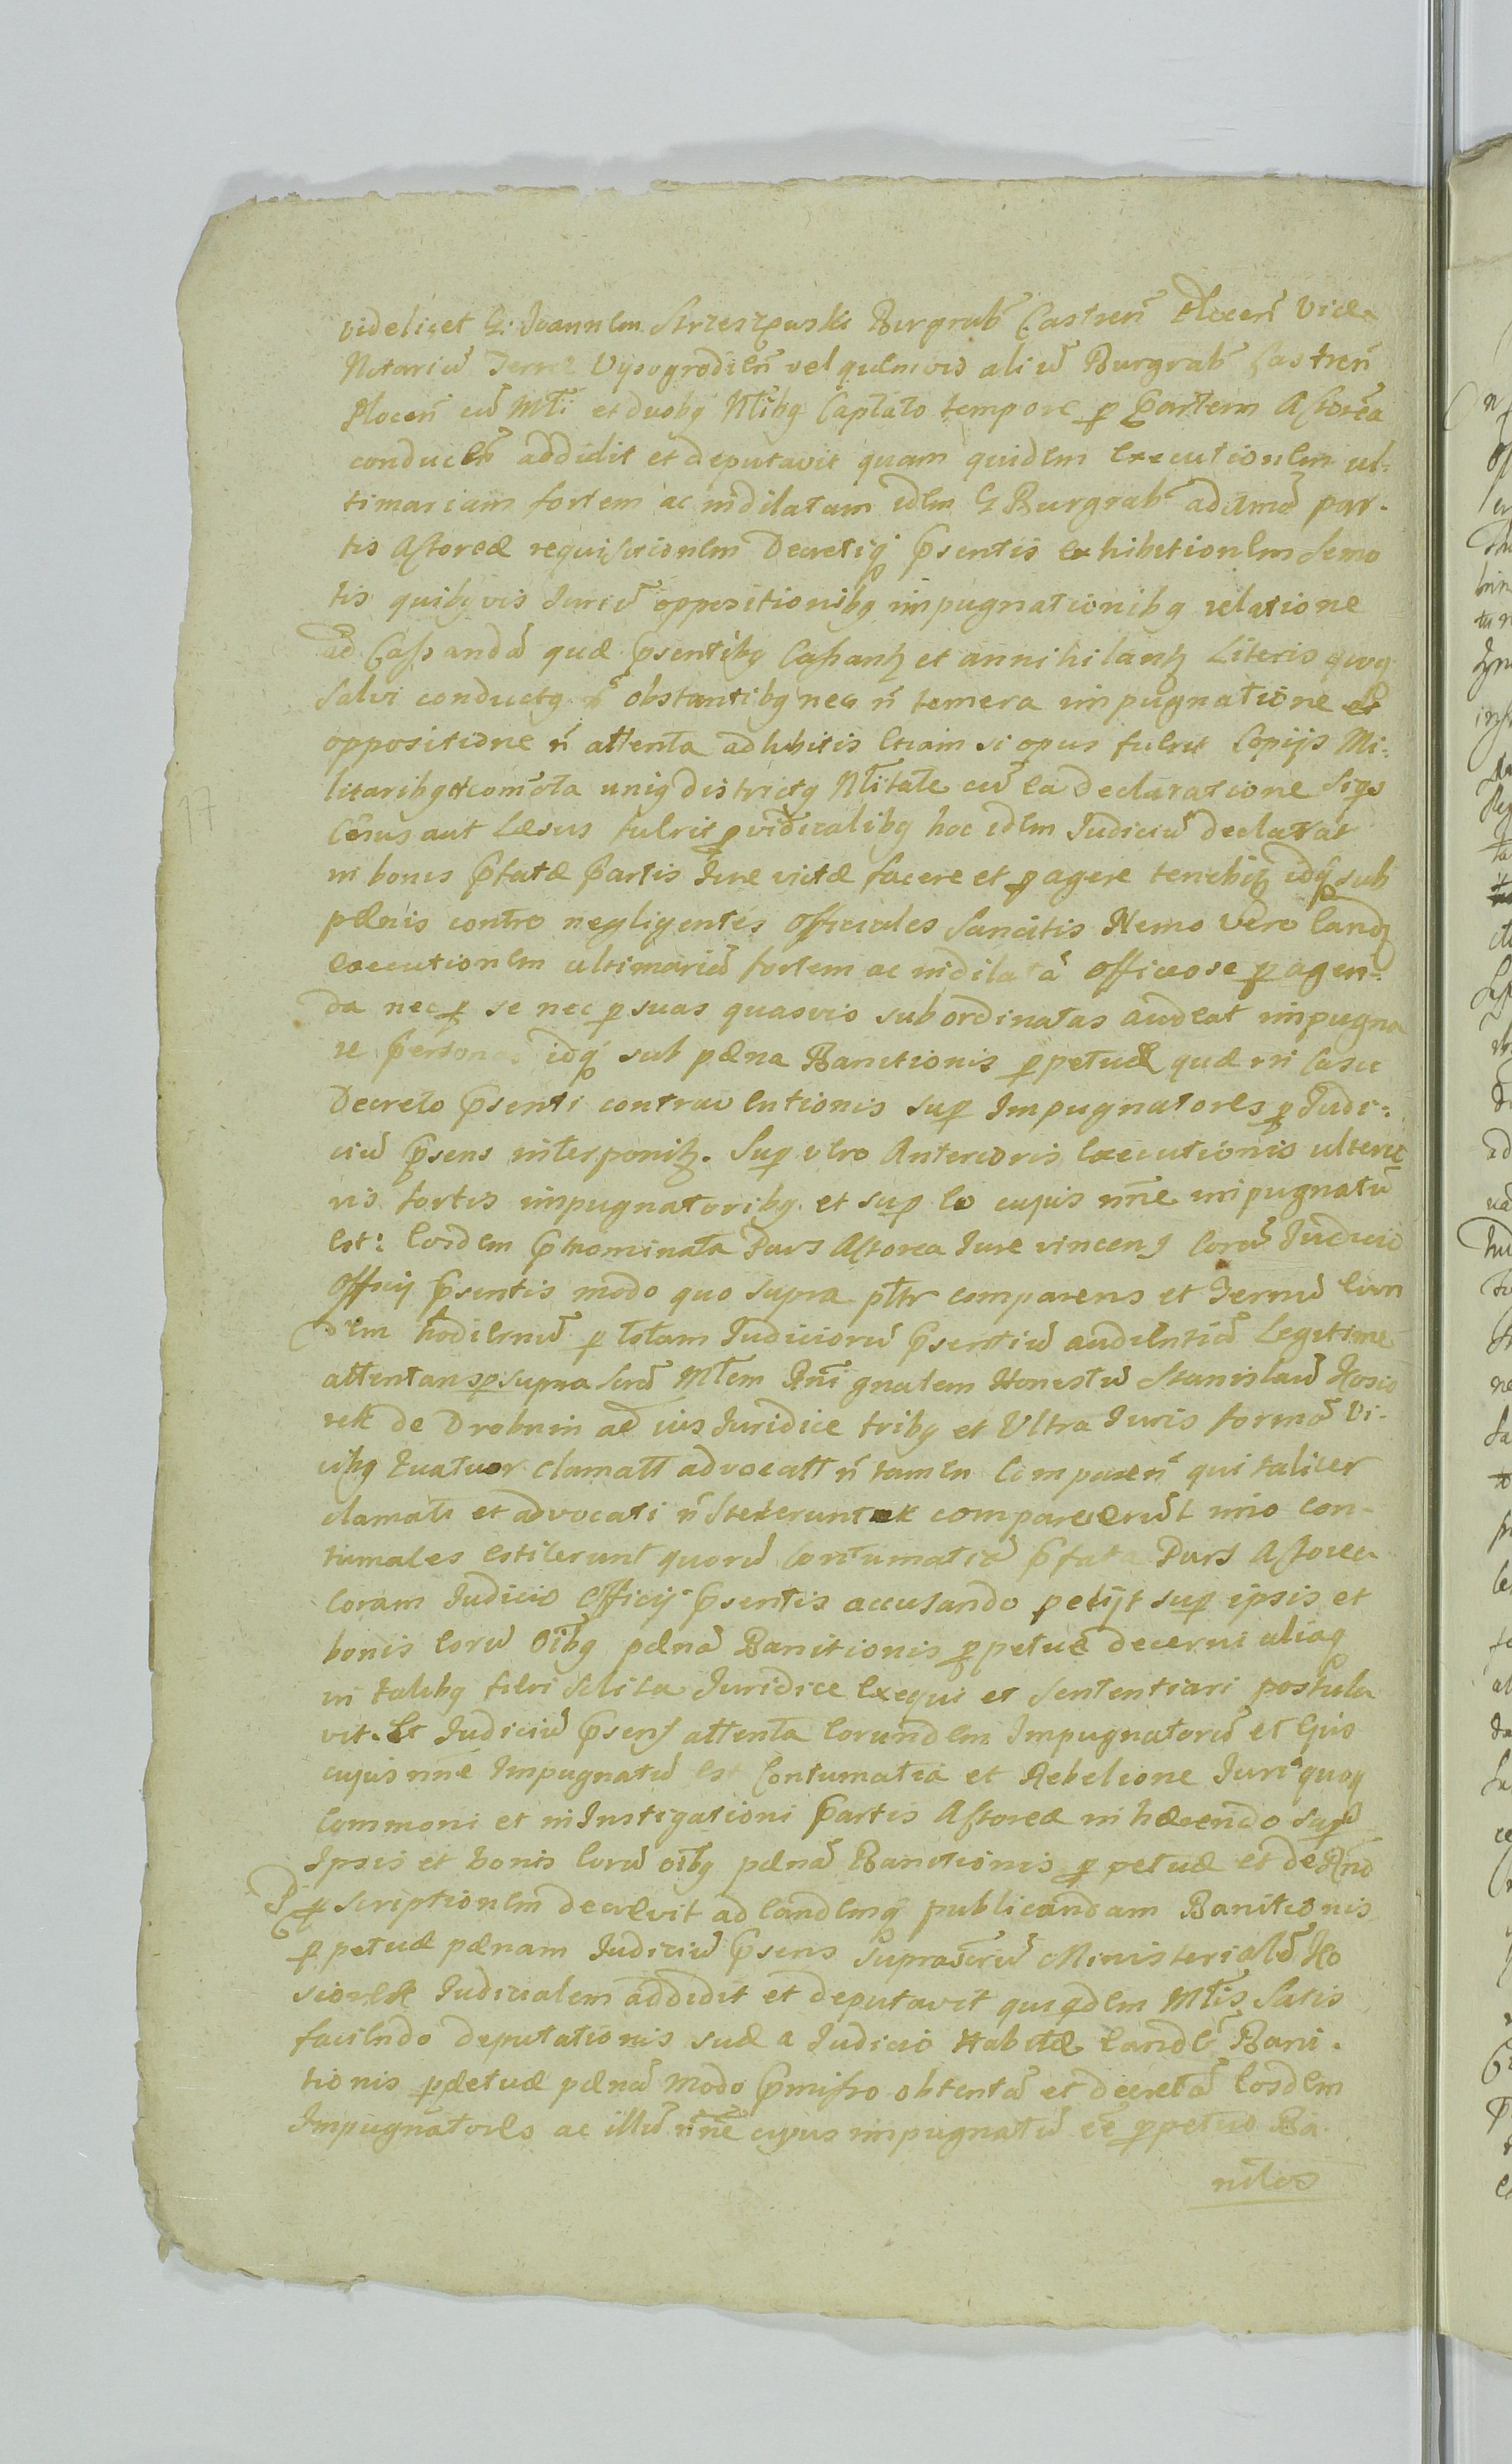 videlicet G. Joannem Strzeszewski Burgrab̃ Castreñ Ploceñ Vice
Notariũ Terræ Vyszogrodieñ vel quemvis aliũ Burgrab̃ Castreñ
Ploceñ cũ Mtłi et duobq Ntłibq Captato tempore p Partem Actorea
conduceñ addidit et deputavit quam quidem executionem ul-
timariam fortem ac indilatam idem G Burgrab̃ ad primã par-
tis Actoreæ requisitionem Decretiq p̃sentis exhibitionem Semo
tis quibqvis Juriũ oppositionibq impugnationibq relatione
ad Cassandã quæ p̃sentibq Cassantʒ et annihilantʒ Literis quoq
Salvi conductq ñ obstantibq nec ñ temera impugnatione et
oppositione ñ attenta adhibitis etiam si opus fuerit Copijs Mi-
litaribq et com̃ota uniq districtq Ntłitate cũ ea declaratione siqs
Cæsus aut Læsus fuerit p vindicalibq hoc idem Judiciũ declarat
in bonis p̃fatæ Partis Jure victæ facere et p agere tenebitʒ idq sub
pænis contra negligentes Officiales Sancitis Nemo vero eandʒ
executionem ultimariã fortem ac indilatã officiose p agen-
da nec p se nec p suas quasvis subordinatas audeat impugna
re Personas idq sub pæna Banitionis p petuæ quæ in Casu
Decreto p̃senti contraventionis sup Impugnatores p Judi-
ciũ p̃sens interponitʒ. Sup vero Anterioris executionis ulterio
ris fortis impugnatoribq et sup eo cujus nõe impugnatũ
est: Eosdem p̃nominata Pars Actorea Jure vincens Corã Judicio
Officij p̃sentis modo quo supra pltr comparens et Terminũ eun
dem hodiernũ p totam Judiciorũ p̃sentiũ audientiã Legitime
attentans p supra scrã Mtłem Rñi gnalem Honestũ Stanislaũ Kosio
rek de Drobnin ad jus Juridice tribq et Ultra Juris formã Vi-
cibq Quatuor clamatt advocatt ñ tamen Compareñ qui taliter
clamati et advocati ñ steterunt nec comparuerũt imo con-
tumaces extiterunt quorũ contumatiã p̃fata Pars Actorea
Coram Judicio Officij p̃sentis accusando petijt sup ipsis et
bonis eorũ õibq pænã Banitionis p petuæ decerni aliaq
in talibq fieri solita Juridice exequi et Sententiari postula
vit. Et Judiciũ p̃sens attenta eorundem Impugnatorũ et Ejus
cujus nõe Impugnatũ est Contumatia et Rebelione Juri quoq
Commoni et in Instigationi Partis Actoreæ inhærendo Sup
Ipsis et bonis eorũ õibq pænã Banitionis p petuæ et de Rno
P p scriptionem decrevit ad eandemq publicandam Banitionis
p petuæ pænam Judiciũ p̃sens Suprascrũ Ministerialẽ Ko
siorek Judicialem addidit et deputavit qui qdem Mtłis Satis
faciendo deputationis suæ a Judicio Habitæ eandẽ Bani-
tionis p petuæ pænã modo p̃misso obtentã et decretã Eosdem
Impugnatores ac illũ nõe cujus impugnatũ ẽẽ p petuo Ba-
nitos